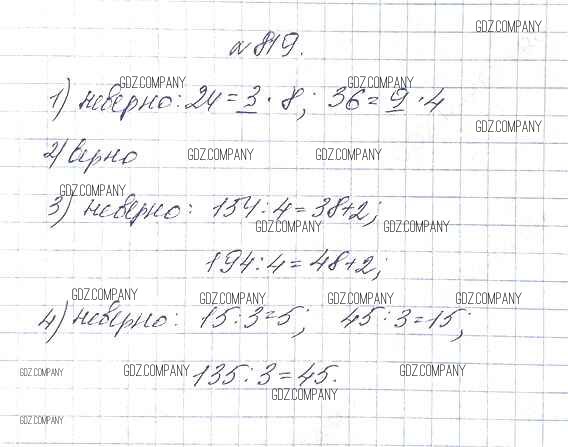 GDZ.COMPANY
№ 819.
GDZ.COMPANY GDZ.COMPANY
1) неверно: 24 = 3 · 8; 36 = 9 · 4
GDZ.COMPANY
2) верно GDZ.COMPANY GDZ.COMPANY
GDZ.COMPANY
3) неверно: 154 : 4 = 38+2;
GDZ.COMPANY GDZ.COMPANY
194 : 4 = 48+2;
GDZ.COMPANY GDZ.COMPANY GDZ.COMPANY GDZ.COMPANY
4) неверно: 15 : 3 = 5; 45 : 3 = 15;
GDZ.COMPANY GDZ.COMPANY 135 : 3 = 45. GDZ.COMPANY
GDZ.COMPANY
GDZ.COMPANY